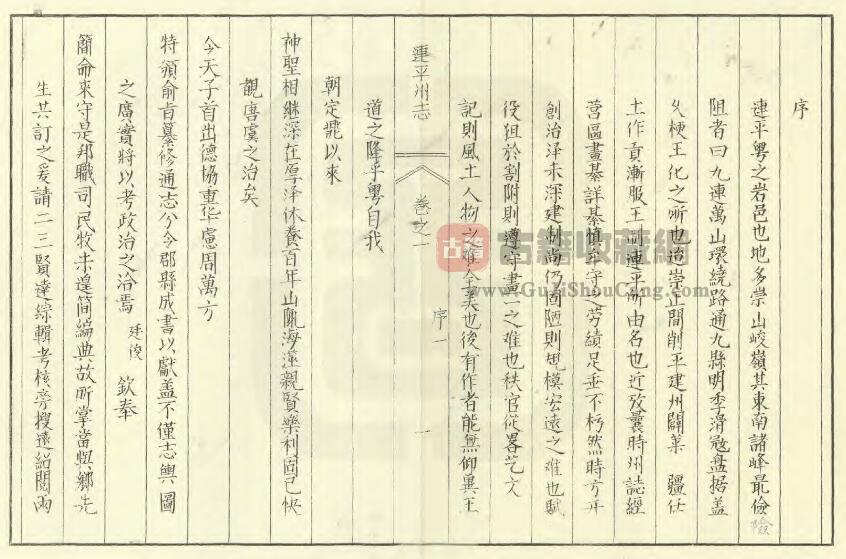 序
連平粵之岩邑也地多崇山峻嶺其東南諸峰最儉
險
阻者曰九連萬山環繞路通九縣明季滑寇盤據蓋
久梗王化之所也迨崇正間削平建州闢萊 疆任
土作貢漸服王制連平所由名也近攷曩時州誌經
營區畫綦詳綦慎年守之勞績足垂不朽然時方开
創治澤未深建制尚仍固陋則規模宏遠之难也賦
役狃於割附則遵守畫一之难也秩官從畧艺文
記則風土人物之难全美也後有作者能無仰異王
道之隆乎粵自我
連平州志 卷之一 序 一 一
朝定鼎以來
神聖相继深在厚泽休養百年山陬海澨親賢樂利固已快
覩唐虞之治矣
今天子首出德協重华慮周萬方
特頒俞旨纂修通志分令郡縣成書以獻蓋不僅志輿圖
之廣實將以考政治之洽焉 廷俊 欽奉
簡命來守是邦職司民牧未遑简編典故所掌當與鄉先
生共訂之爰請二三賢達綜輯考核旁搜遠紹閱兩
古籍 古籍收藏網
www.GuJiShouCang.com